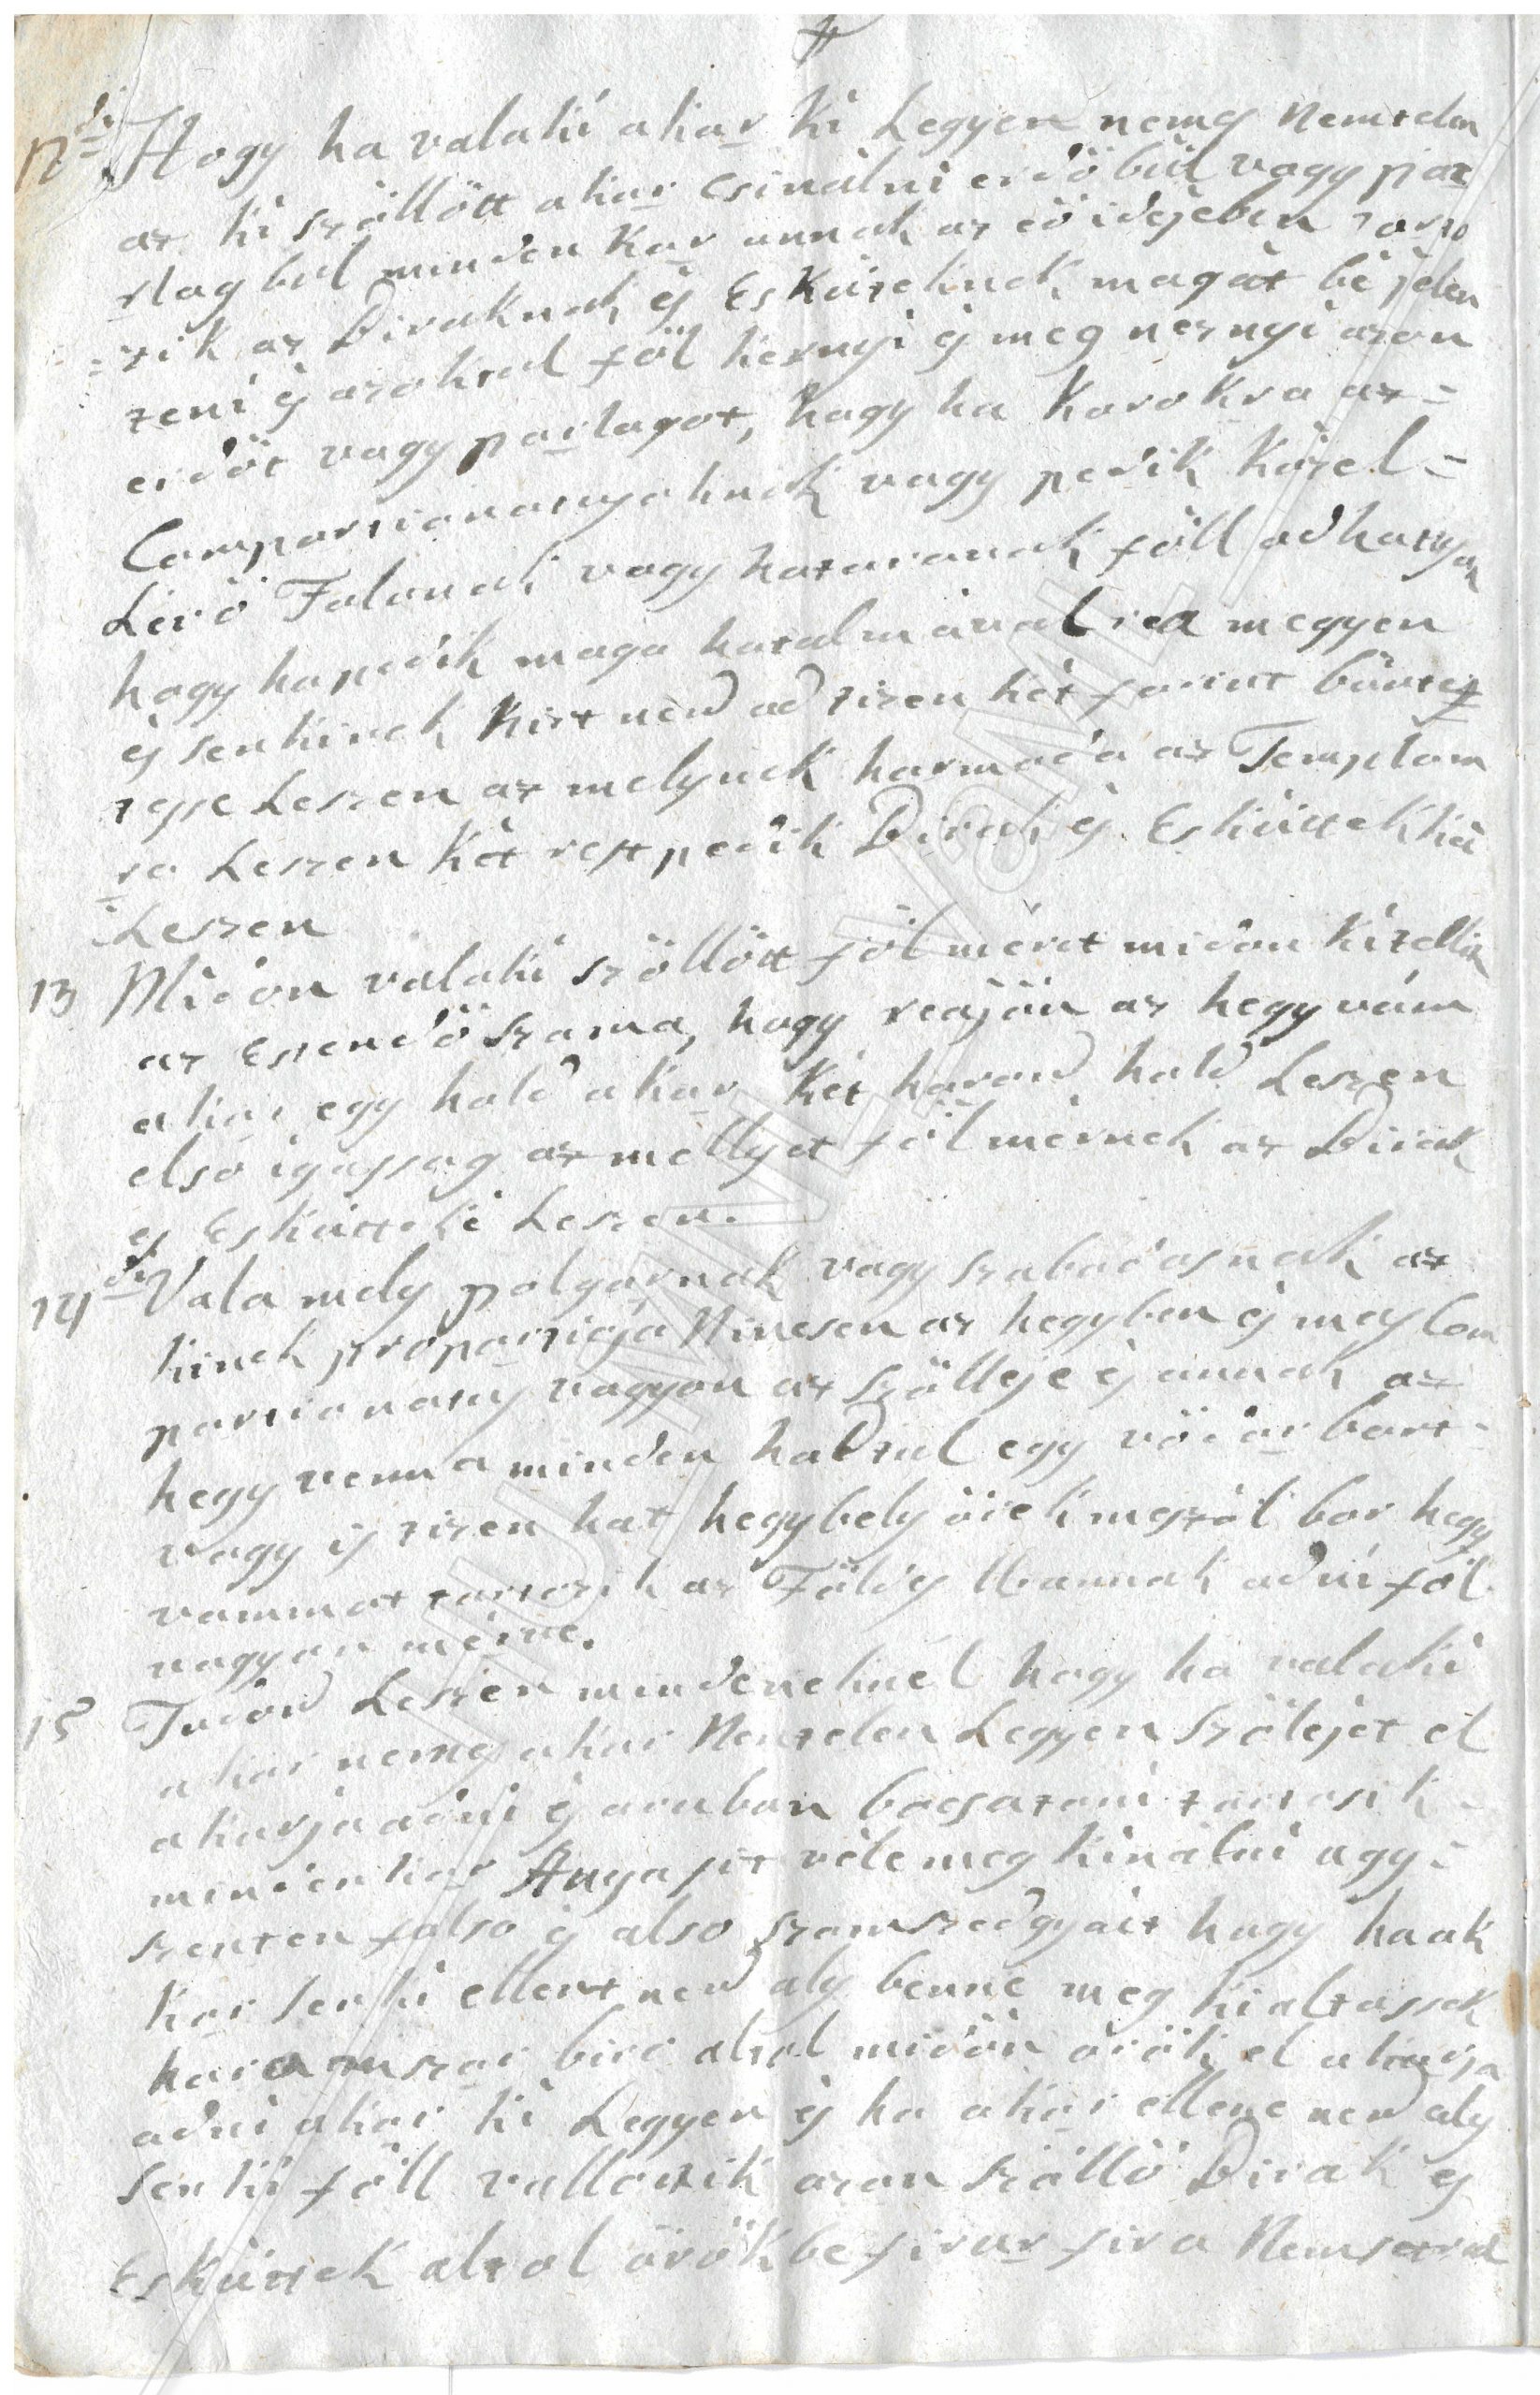 12dik Hogy ha valaki akar ki Legyen nemes Nemtelen
az ki szőllőtt akar csinálni erdőbűl vagy par
rlagbul minden kor annak az eö idejeben tarto
zik az Biraknak és Esküteknek magát bé jelen
teni és azoktul föl kernyi és meg neznyi azon
erdőt vagy parlagot, hogy ha karokra az =
Comportionatusoknek vagy pedik közel =
Levő Falunak vagy hataranak föll adhattyak
hogy ha pedik maga hatalmával rea megyen
és senkinek hirt nem ad tizen két forint bűnte
tesse Leszen az melynek harmada az Templom
ra Leszen két rest pedik Birák és Eskűttekhe
Leszen
13 Midon valaki szőllőtt föl méret midon kitellik
az esztendő szama, hogy reajön az hegy vám
akar egy hold akar két három hold Leszen
elso igassag az mellyet föl mérnek az Birak
es Eskűtteké Leszen.
14dik Vala mely polgarnak vagy szabadosnak az
kinek proportioja Nincsen az hegyben és mes Com
portionatus vagyon az szőlleje és annak az
hegy vama minden holdtul egy vödör bort =
vagy is tizen hat hegybely öreg meszöl bor hegy
vammat tartozik az Földes Urannak adni föl
vagyon mérve.
15 Tudva Leszen mindeneknél hogy ha valaki
akar nemes akar Nemtelen Legyen Szőlejét el
akarja adni és aruban bocsatani tartozik =
mindenkor Attyafit véle meg kinalni ugy =
szenten felso és also szomszedgyáit hogy ha ak
kor senki ellent nem aly benne meg kialtassek
haromszor biro altal midőn örök el akarja
adni akar ki Legyen és ha akor ellene nem aly
senki föll vallatik azon szőllő Birak és
Eskűttek altal örökbe firur fira Nemzetrul